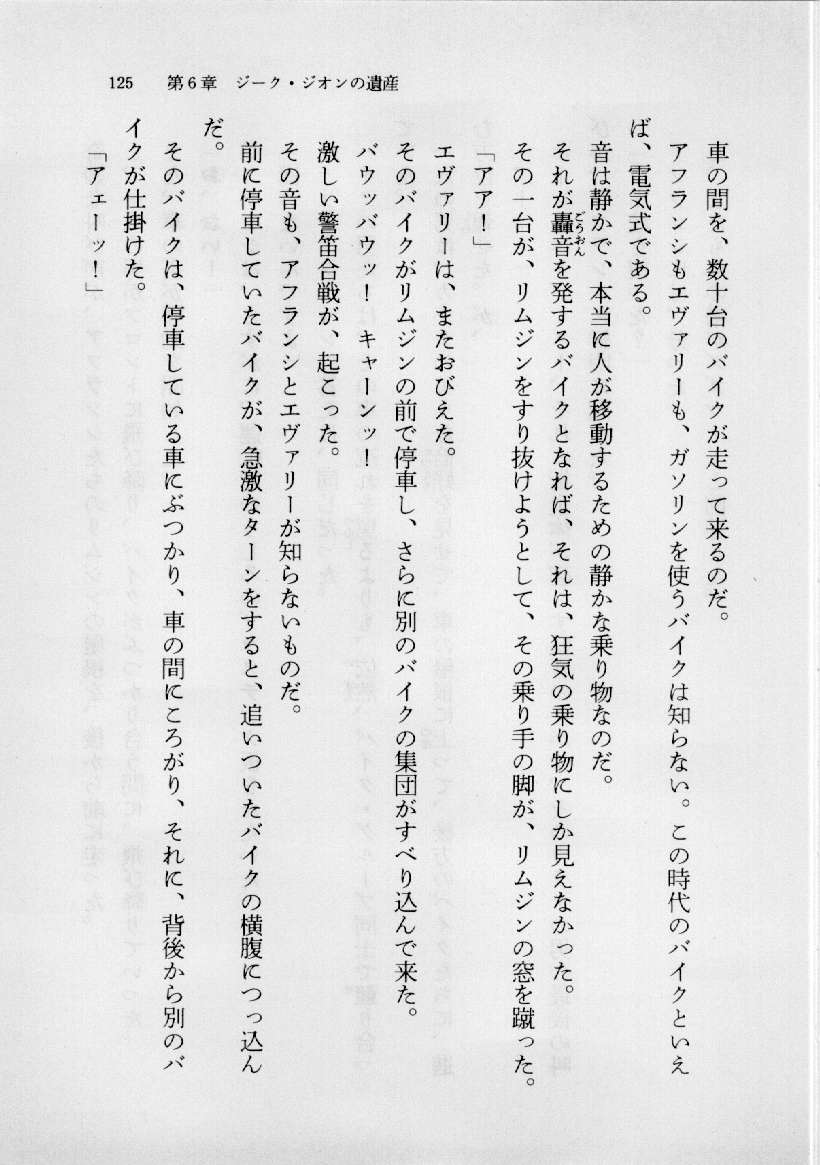 125　第6章　ジーク・ジオンの遺産
車の間を、数十台のバイクが走って来るのだ。
アフランシもエヴァリーも、ガソリンを使うバイクは知らない。この時代のバイクといえ
ば、電気式である。
音は静かで、本当に人が移動するための静かな乗り物なのだ。
それが轟音を発するバイクとなれば、それは、狂気の乗り物にしか見えなかった。
ごうおん
その一台が、リムジンをすり抜けようとして、その乗り手の脚が、リムジンの窓を蹴った。
「アア！」
エヴァリーは、またおびえた。
そのバイクがリムジンの前で停車し、さらに別のバイクの集団がすべり込んで来た。
バウッバウッ！　キャーンッ！
激しい警笛合戦が、起こった。
その音も、アフランシとエヴァリーが知らないものだ。
前に停車していたバイクが、急激なターンをすると、追いついたバイクの横腹につっ込ん
だ。
そのバイクは、停車している車にぶつかり、車の間にころがり、それに、背後から別のバ
イクが仕掛けた。
「アェーッ！」